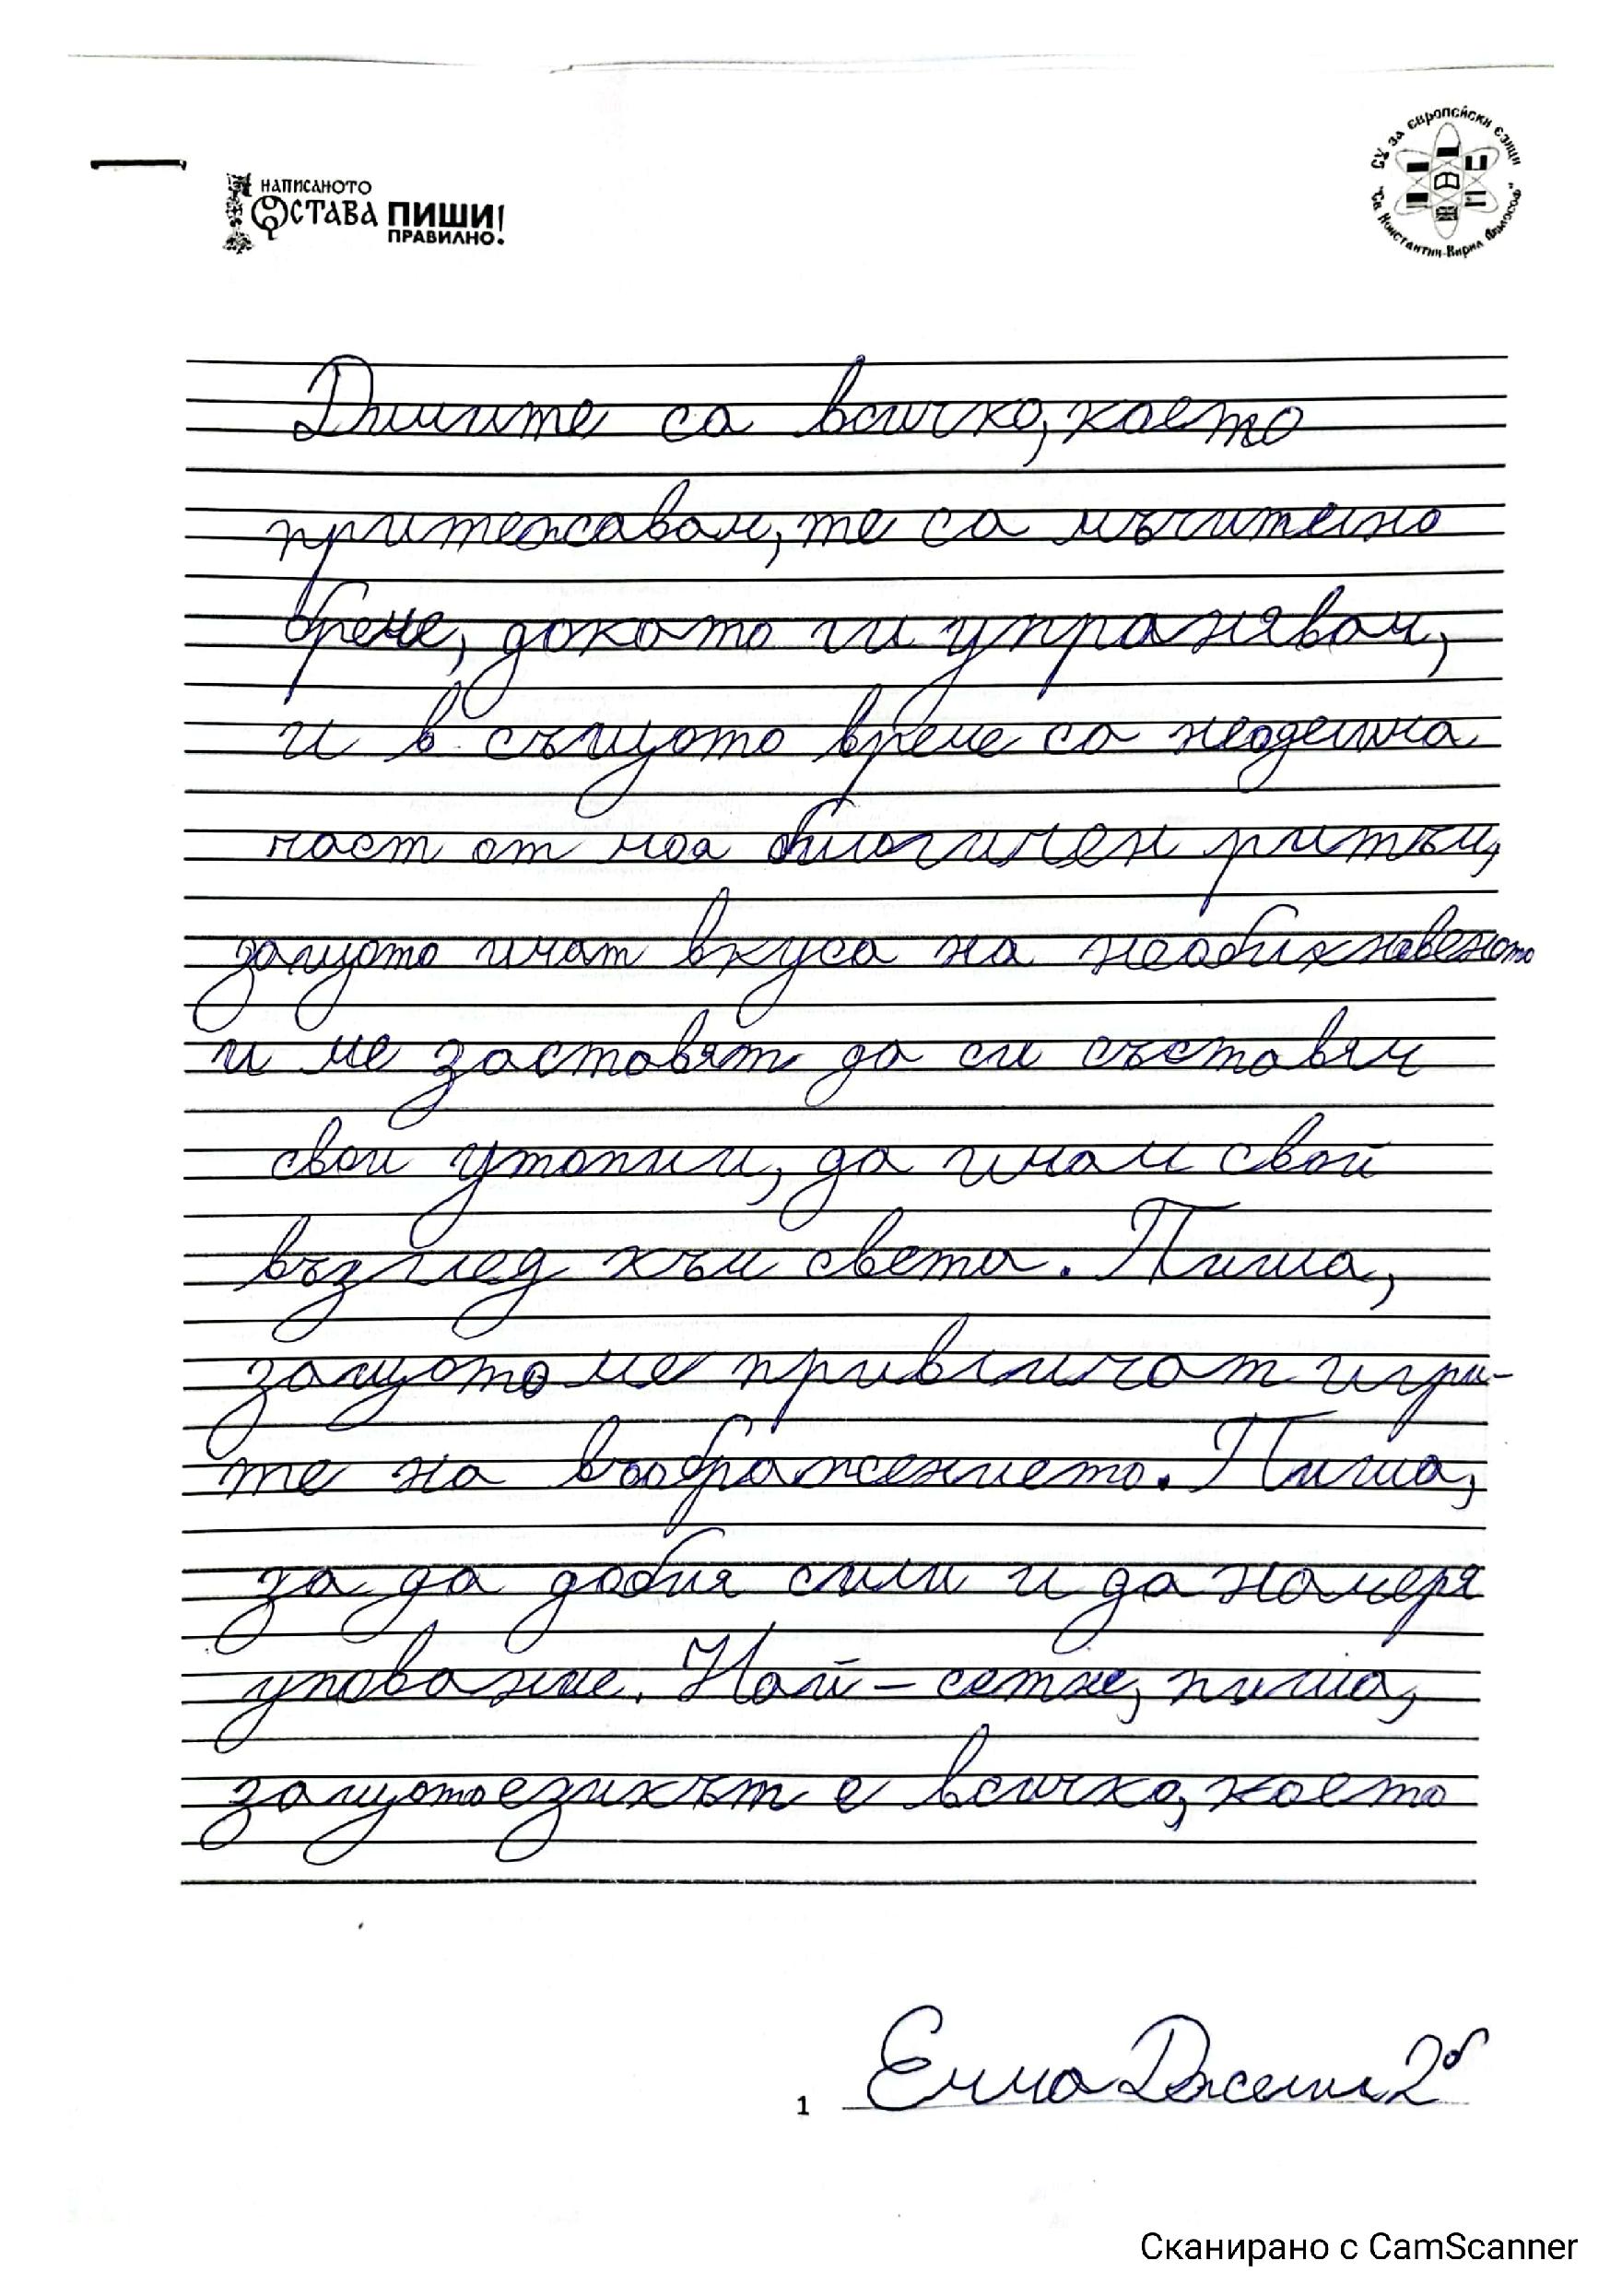 СУ за европейски езици
"Св. Константин-Кирил Философ"
НАПИСАНОТО
ОСТАВА ПИШИ!
ПРАВИЛНО.
Думите са всичко, което
притежавам, те са мъчително
бреме, докато ги упранявам,
и в същото време са неделима
част от моя биологичен ритъм,
защото имат вкуса на необикновеното
и ме заставят да си съставям
свои утопии, да имам свой
възглед към света. Пиша,
защото ме привличат игри-
те на въображението. Пиша,
за да добия сили и да намеря
упование. Най-сетне, пиша,
защото езикът е всичко, което
1 Емма 2б
Сканирано с CamScanner